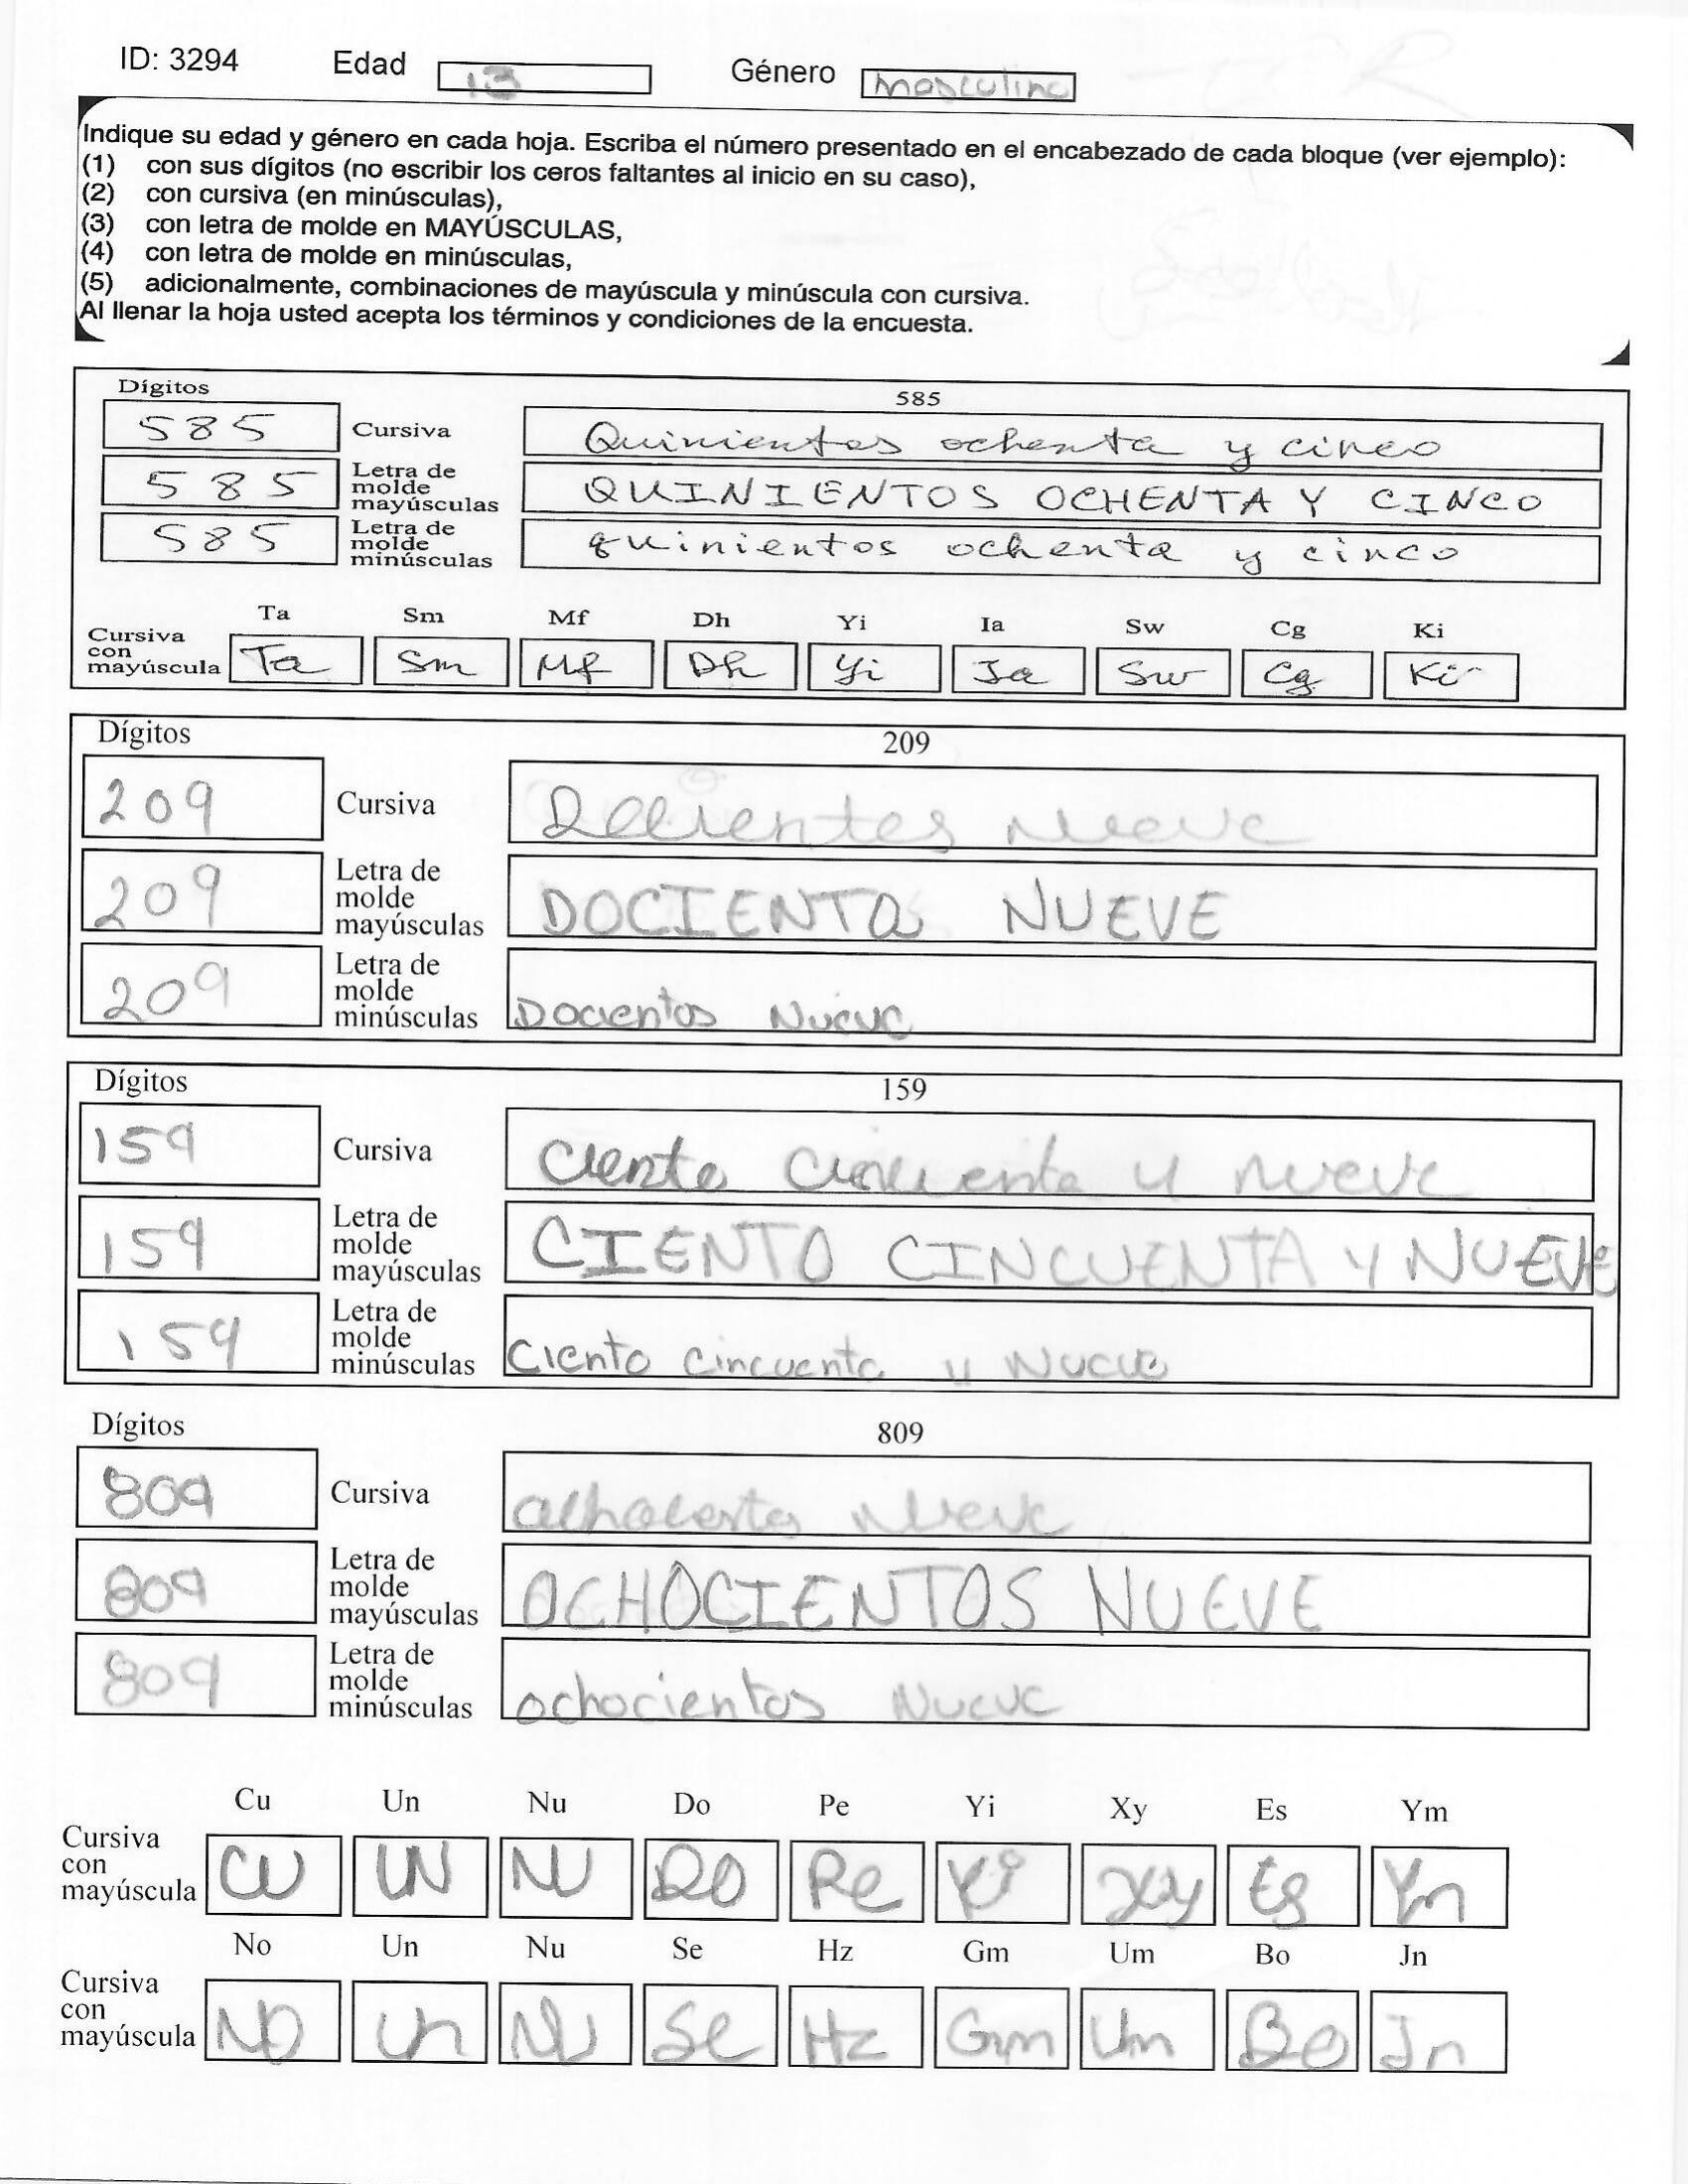 ID: 3294 Edad 13 Género masculino
Indique su edad y género en cada hoja. Escriba el número presentado en el encabezado de cada bloque (ver ejemplo):
(1) con sus dígitos (no escribir los ceros faltantes al inicio en su caso),
(2) con cursiva (en minúsculas),
(3) con letra de molde en MAYÚSCULAS,
(4) con letra de molde en minúsculas,
(5) adicionalmente, combinaciones de mayúscula y minúscula con cursiva.
Al llenar la hoja usted acepta los términos y condiciones de la encuesta.
Dígitos 585
585 Cursiva Quinientos ochenta y cinco
585 Letra de molde mayúsculas QUINIENTOS OCHENTA Y CINCO
585 Letra de molde minúsculas quinientos ochenta y cinco
Ta Sm Mf Dh Yi Ia Sw Cg Ki
Cursiva con mayúscula Ta Sm Mf Dh Yi Ia Sw Cg Ki
Dígitos 209
209 Cursiva nueve
209 Letra de molde mayúsculas DOCIENTOS NUEVE
209 Letra de molde minúsculas Docientos Nueve
Dígitos 159
159 Cursiva ciento cincuenta y nueve
159 Letra de molde mayúsculas CIENTO CINCUENTA Y NUEVE
159 Letra de molde minúsculas Ciento cincuenta y Nueve
Dígitos 809
809 Cursiva nueve
809 Letra de molde mayúsculas OCHOCIENTOS NUEVE
809 Letra de molde minúsculas ochocientos Nueve
Cu Un Nu Do Pe Yi Xy Es Ym
Cursiva con mayúscula CU UN NU DO Pe Yi Xy Es Ym
No Un Nu Se Hz Gm Um Bo Jn
Cursiva con mayúscula NO Un NU Se Hz Gm Um Bo Jn